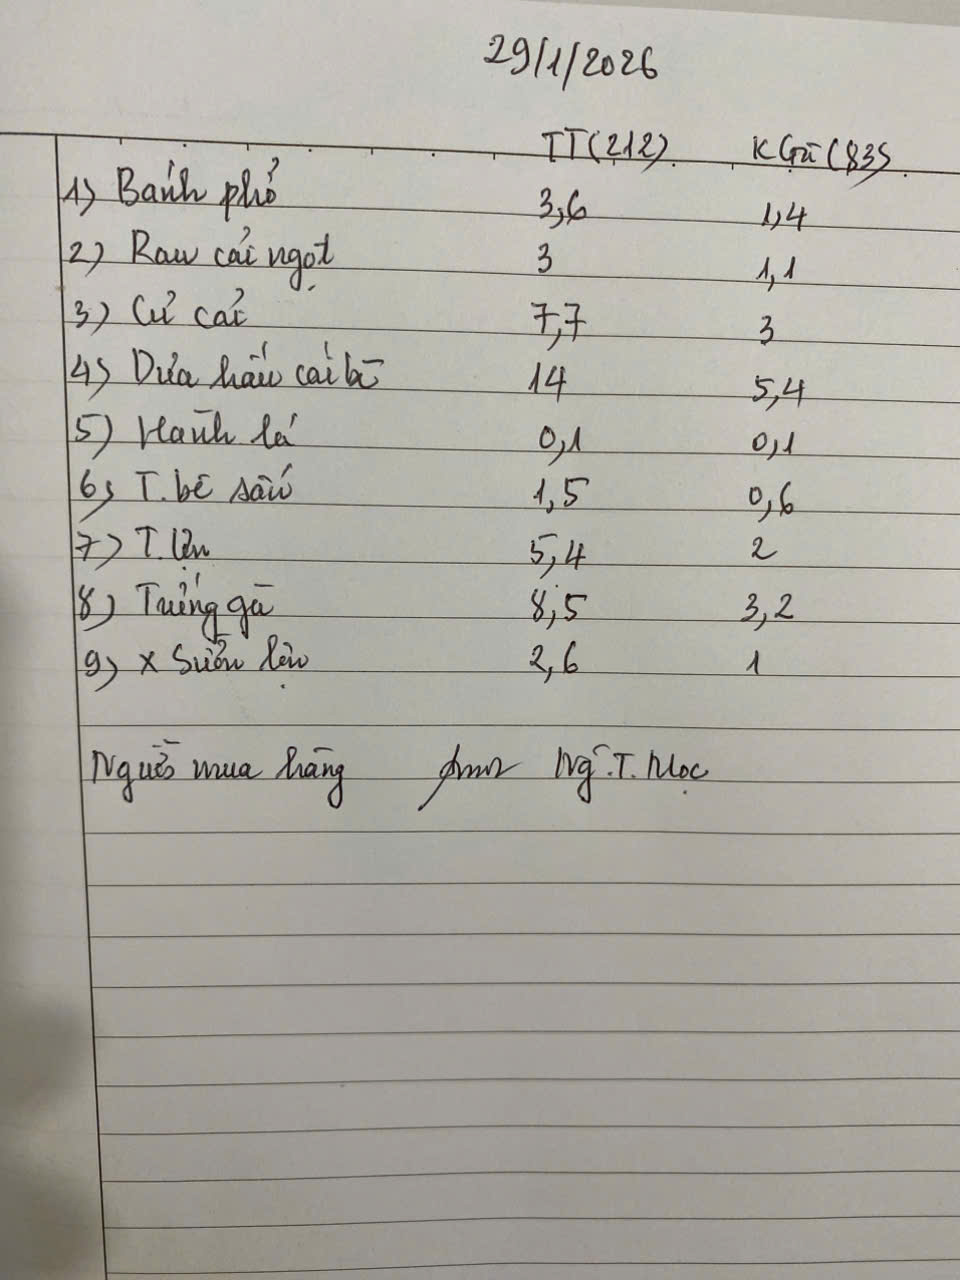 29/1/2026
TT(212). K Gà (83).
1) Bánh phở 3,6 1,4
2) Rau cải ngọt 3 1,1
3) Củ cải 7,7 3
4) Dưa hấu cái bì 14 5,4
5) Hành lá 0,1 0,1
6) T. bê sấu 1,5 0,6
7) T. lợn 5,4 2
8) Trứng gà 8,5 3,2
9) x Sườn lợn 2,6 1
Người mua hàng Ng~.T. Mọc